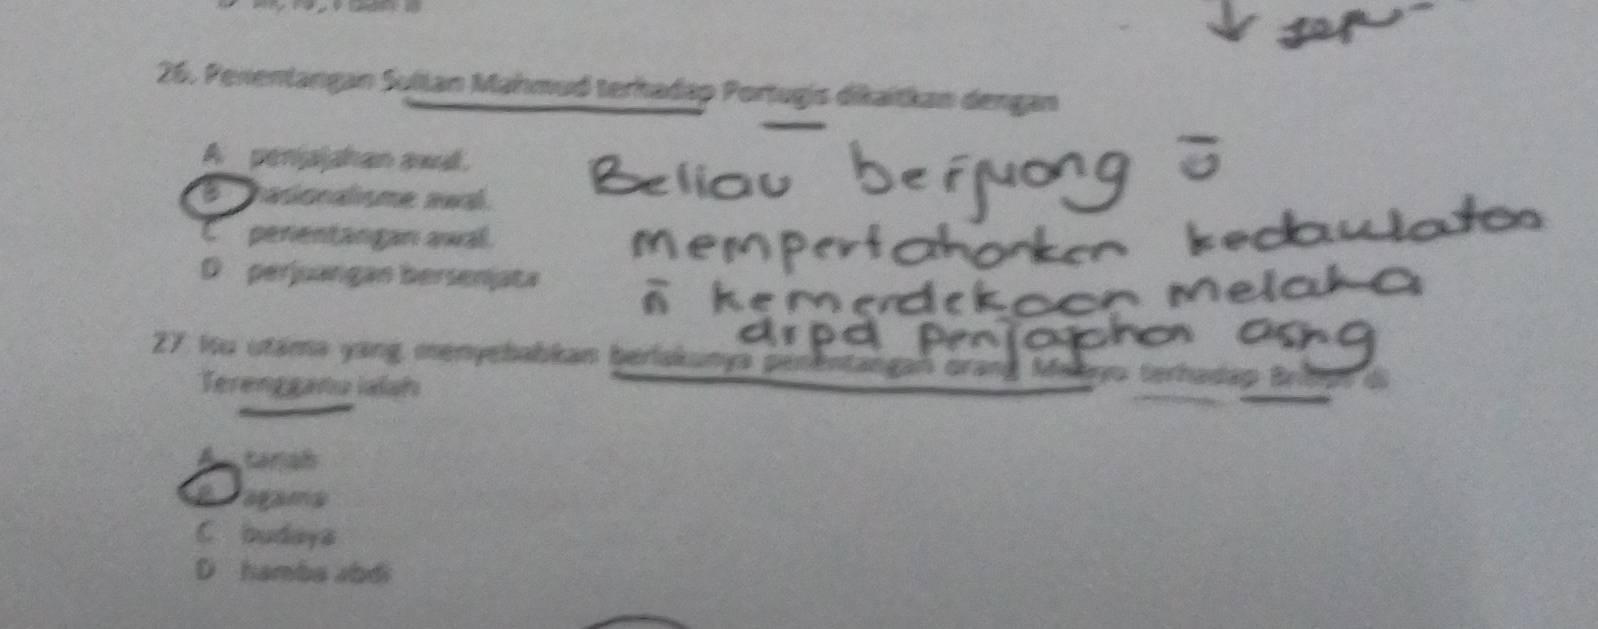 26. Penentangan Sultan Mahmud terhadap Portugis dikaitkan dengan
A penjajahan awal.
B nasionalisme awal.
C penentangan awal.
D perjuangan bersenjata
Beliau berjuang ū
mempertahankan kedaulatan
n̄ kemerdekaan Melaka
drpd penjajahan asng
27. Isu utama yang menyebabkan berlakunya penentangan orang Melayu terhadap British di
Terengganu ialah
A tanah
B agama
C budaya
D hamba abdi